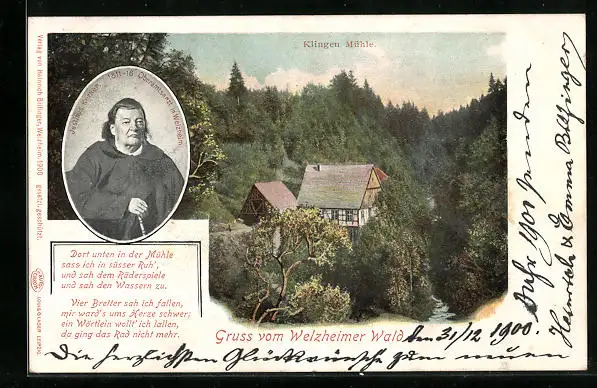 Klingen Mühle.
Justinus Kerner, 1811-16 Oberamtsarzt in Welzheim.
Dort unten in der Mühle
sass ich in süsser Ruh',
und sah dem Räderspiele
und sah den Wassern zu.
Vier Bretter sah ich fallen,
mir ward's ums Herze schwer;
ein Wörtlein wollt' ich lallen,
da ging das Rad nicht mehr.
Gruss vom Welzheimer Wald.
den 31/12 1900.
Die herzlichsten Glückwünsche zum neuen
Jahr 1901 senden
Heinrich & Emma Bilfinger
Verlag von Heinrich Bilfinger, Welzheim. 1900 gesetzl. geschützt.
LOUIS GLASER LEIPZIG